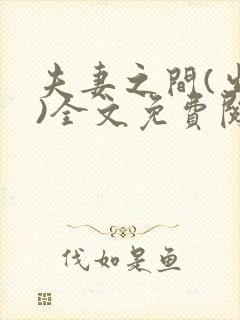 夫妻之間(
)全文免費閱
伐如是鱼